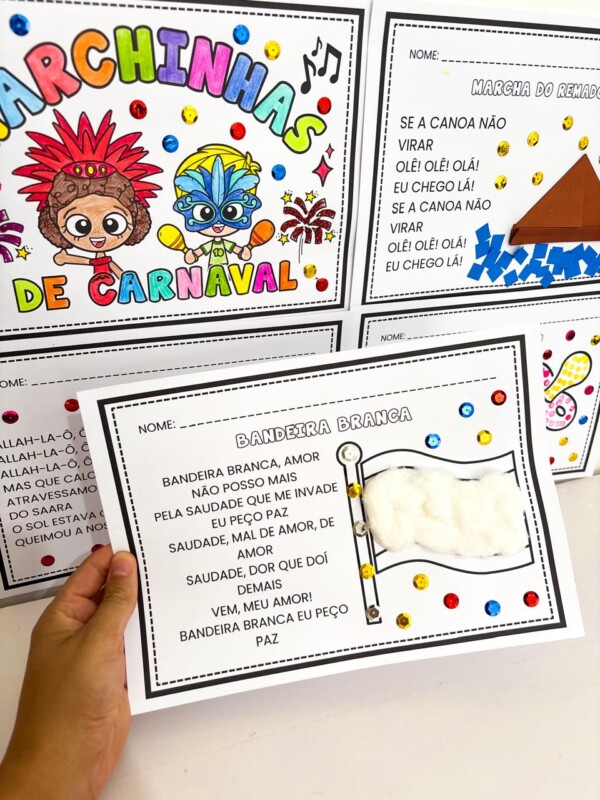 MARCHINHAS
DE CARNAVAL
NOME:
MARCHA DO REMADO
SE A CANOA NÃO
VIRAR
OLÊ! OLÊ! OLÁ!
EU CHEGO LÁ!
SE A CANOA NÃO
VIRAR
OLÊ! OLÊ! OLÁ!
EU CHEGO LÁ!
OME:
ALLAH-LA-Ô, Ô
ALLAH-LA-Ô, Ô
MAS QUE CALO
ATRAVESSAMO
DO SAARA
O SOL ESTAVA
QUEIMOU A NOS
NOME:
NOME:
BANDEIRA BRANCA
BANDEIRA BRANCA, AMOR
NÃO POSSO MAIS
PELA SAUDADE QUE ME INVADE
EU PEÇO PAZ
SAUDADE, MAL DE AMOR, DE
AMOR
SAUDADE, DOR QUE DOÍ
DEMAIS
VEM, MEU AMOR!
BANDEIRA BRANCA EU PEÇO
PAZ